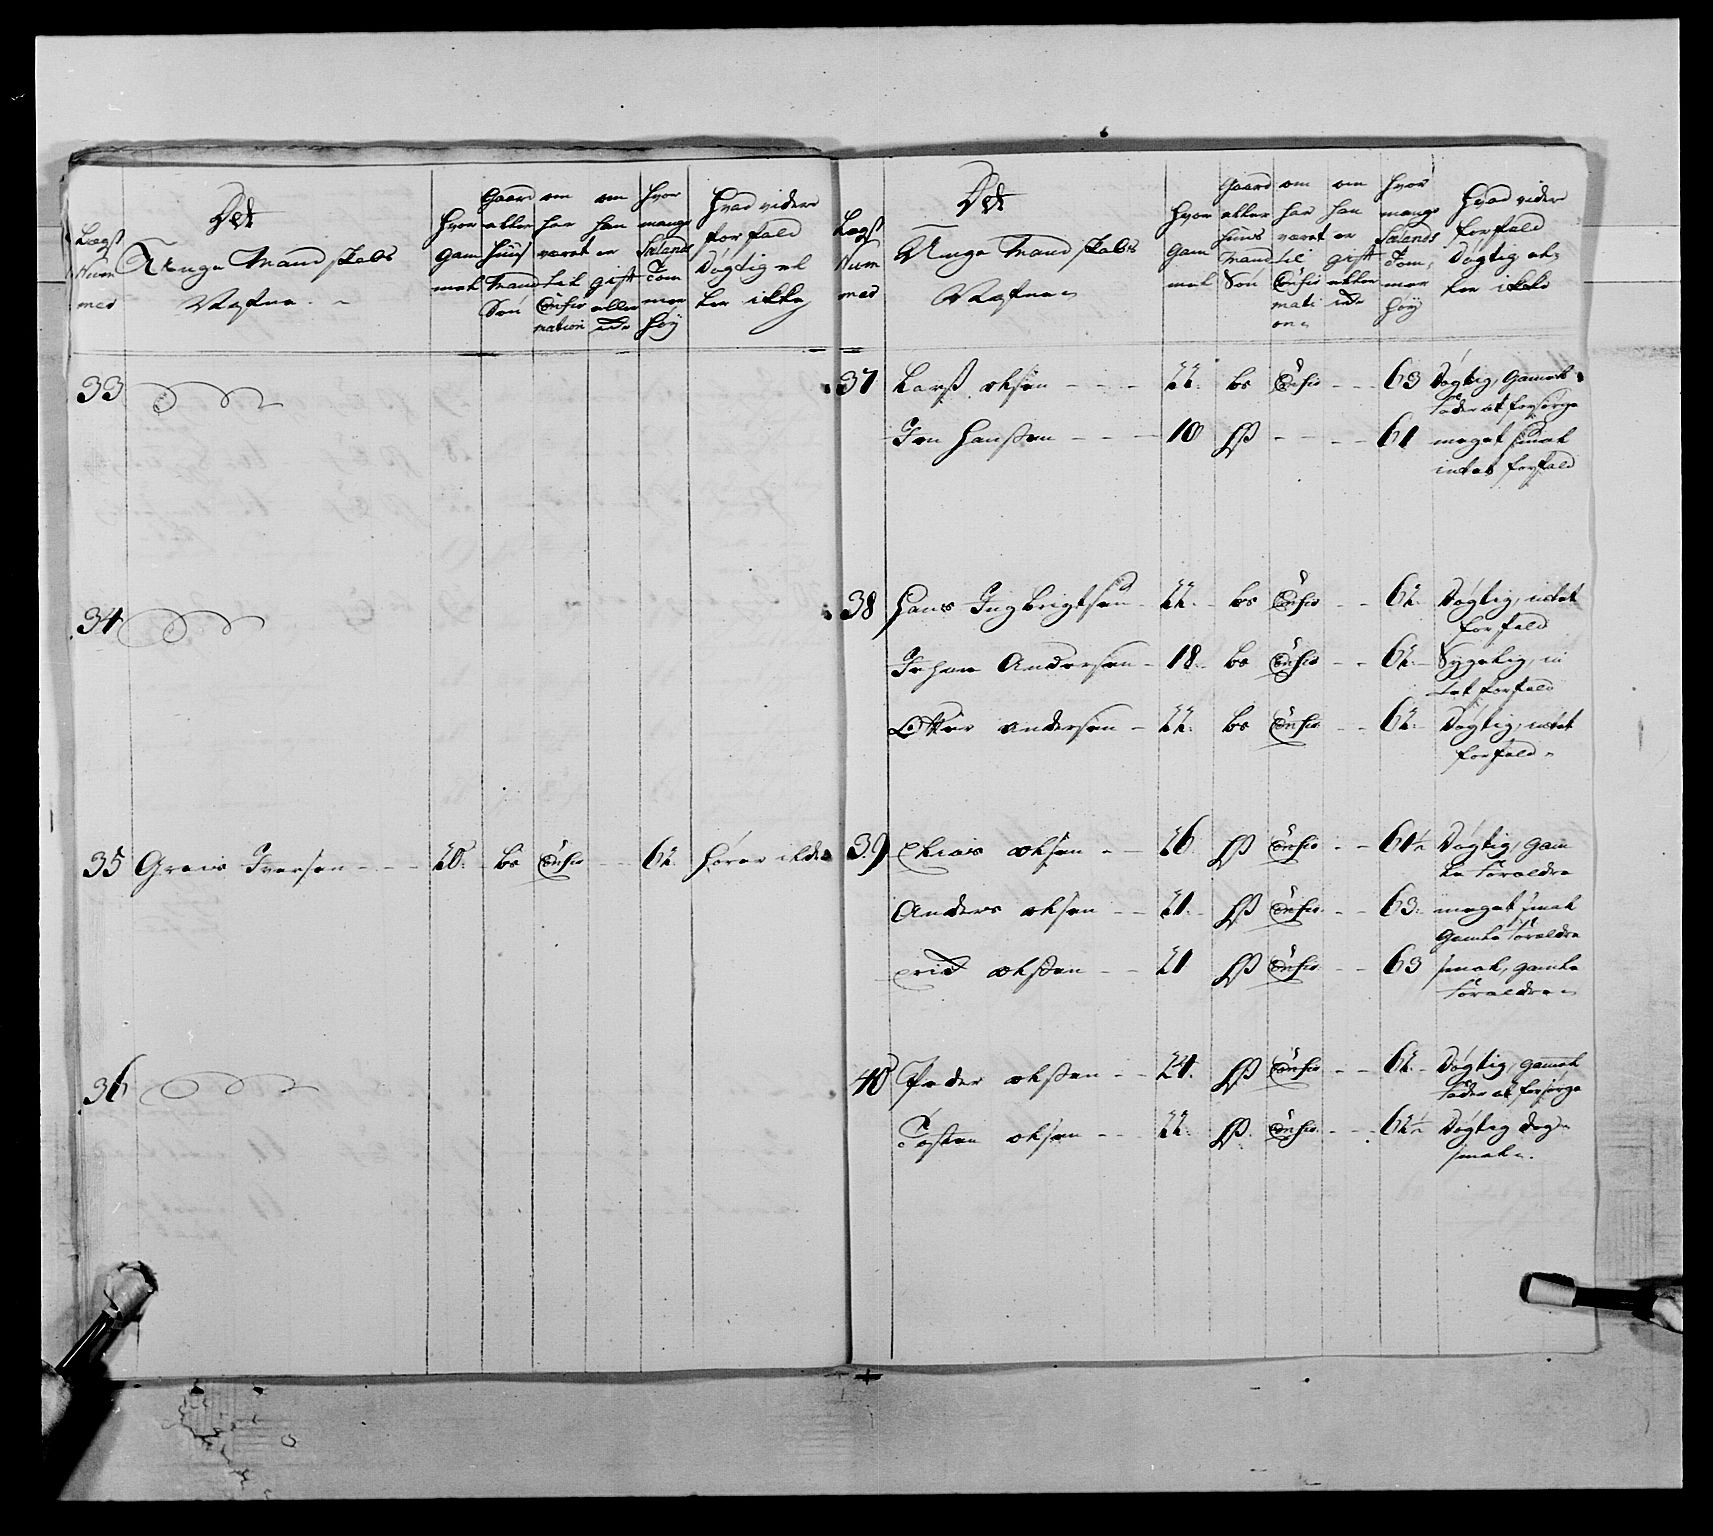 Lægs Num mer
Det Unge Mandskabs Nafne
Hvor gam mel
Gaard eller Huus Mand Søn
om har været til Confir mation
om han er gift eller ide
Hvor mange Sælands Tom mer Høy
Hvad videre forfald Døgtig el ler ikke
33
34
35 Greis Iversen - - - 20. bs Confir - - 62. hører ilde
36
Lægs Num mer
Det Unge Mandskabs Nafne
Hvor gam mel
Gaard eller Huus Mand Søn
om har været til Confir mati on
om han er gift eller ide
Hvor mange Sælands Tom mer Høy
Hvad videre forfald Døgtig el ler ikke
37 Larß olsen - - - 22. bs Confir - - 63 Døgtig, Gamel
Fader at forsørge
Iver Hanßen - - - 10 HS - - - 61 meget smal
intet forfald
38 Hans Ingbrigtsen - 22. bs Confir - - 62. Døgtig, intet
forfald
Johan Andersen - 18. bs Confir - - 62. Sygelig, in
tet forfald
andersen - 22. bs Confir - - 62. Døgtig, intet
forfald
39 Elias olsen - - 26 HS Confir - - 61½ Døgtig, gam
le Forældre
Anders olsen - - 21. HS Confir - - 63. meget smal
Gamle Forældre
olßen - - 21 HS Confir - - 63 smal, gamle
Forældre
40 Peder olßen - - 24. HS Confir - - 62. Døgtig, gamel
Fader at forsørge
Tosten olsen - - 22. HS. Confir - - 62½ Døgtig dog
smal.